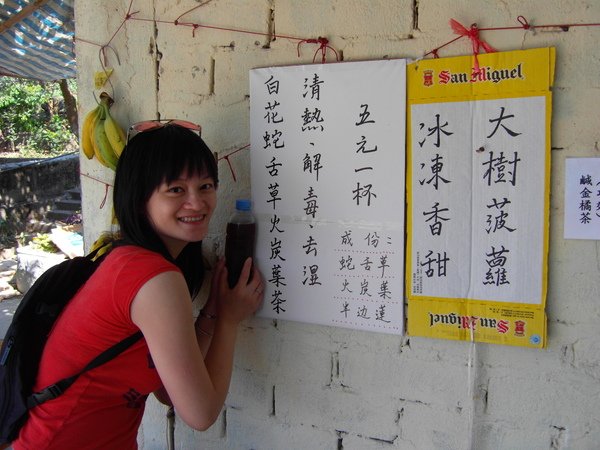 白花蛇舌草火炭葉茶
清熱、解毒、去湿
五元一杯
成份:
蛇舌草
火炭葉
半边蓮
San Miguel
大樹菠蘿
冰凍香甜
San Miguel
鹹金橘茶